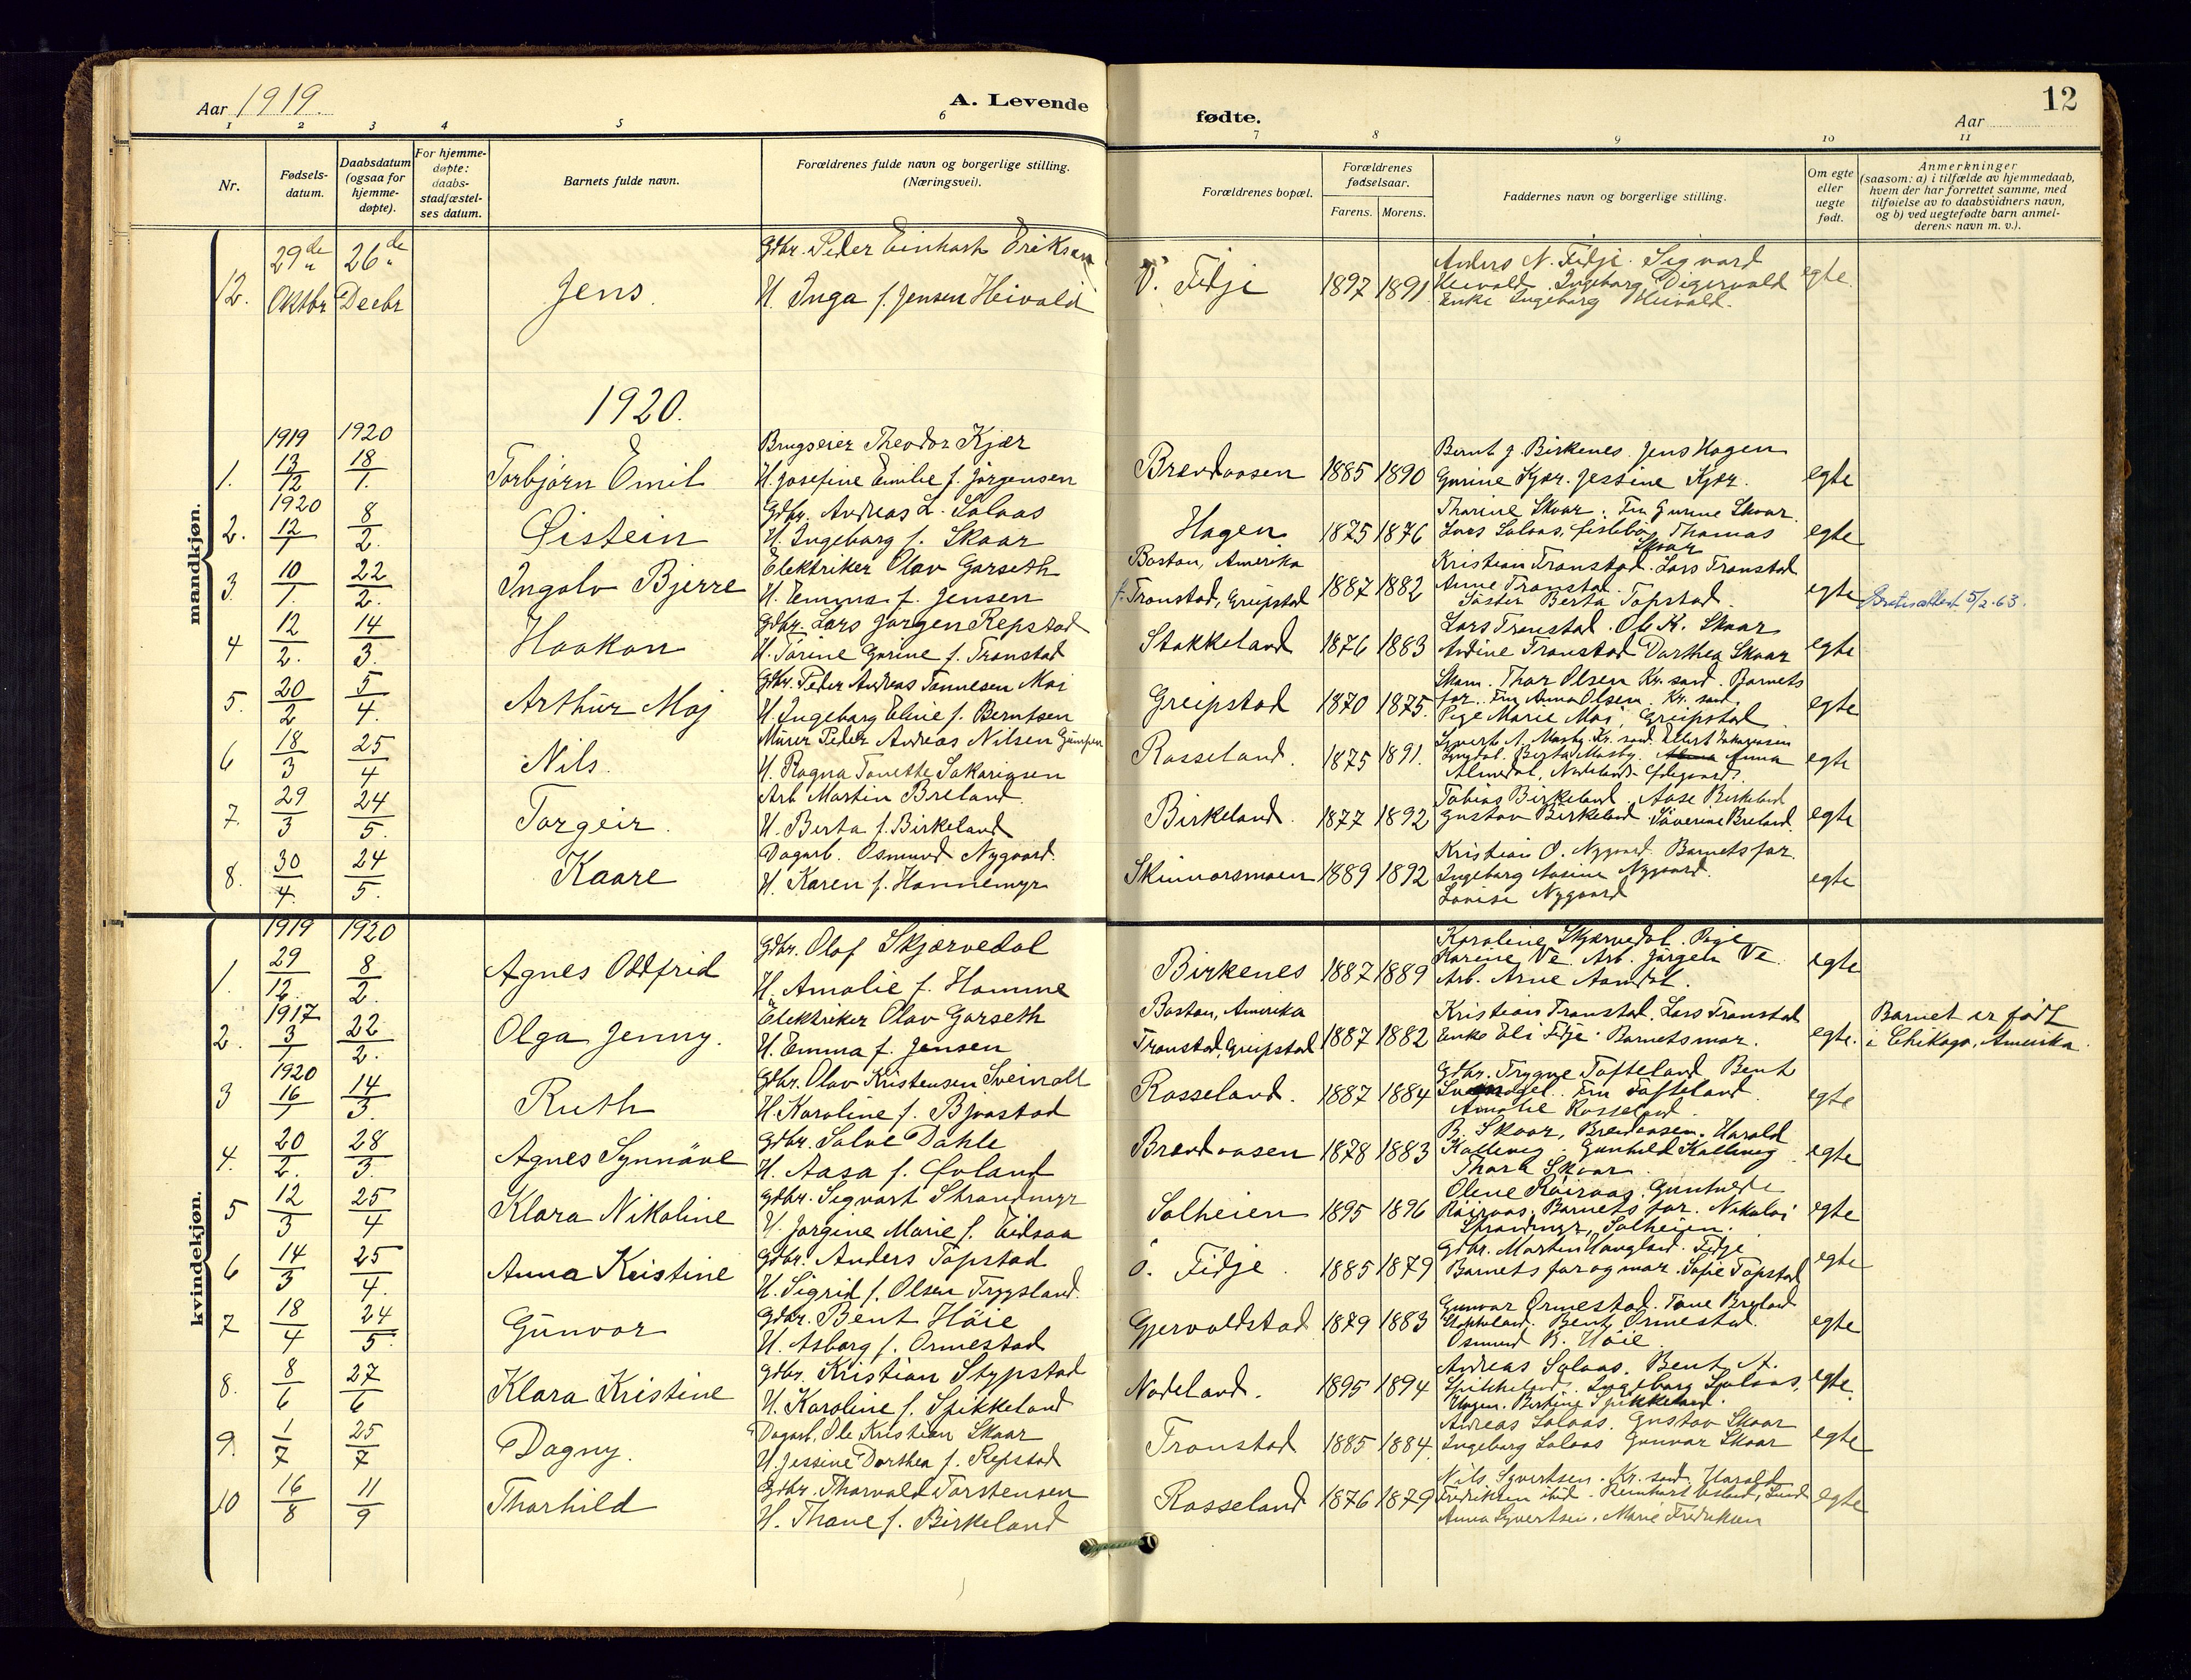 Aar 1919.
A. Levende
fødte.
Aar
12
1 2 3 4 5 6 7 8 9 10 11
Nr.
Fødsels-
datum.
Daabsdatum
(ogsaa for
hjemme-
døpte).
For hjemme-
døpte:
daabs-
stadfæstel-
ses datum.
Barnets fulde navn.
Forældrenes fulde navn og borgerlige stilling.
(Næringsvei).
Forældrenes bopæl.
Forældrenes
fødselsaar.
Farens. Morens.
Faddernes navn og borgerlige stilling.
Om egte
eller
uegte
født.
Anmerkninger
(saasom: a) i tilfælde av hjemmedaab,
hvem der har forrettet samme, med
tilføielse av to daabsvidners navn,
og b) ved uegtefødte barn anmel-
derens navn m. v.).
mandkjøn.
12. 29de Oktbr 26de Decbr Jens.
Gdbr. Peder Einhart Eriksen
H. Inga f. Jensen Heivold
V. Fidje 1897 1891
Anders N. Fidje. Sigvard
Heivold. Ingeborg Digervold
Enke Ingeborg Heivold.
egte.
1920.
1919 1920
1. 13/12 18/1. Torbjørn Emil
Brugseier Theodor Kjær
H. Josefine Emilie f. Jörgensen
Brændaasen 1885 1890
Bernt J. Birkenes. Jens Hagen
Gurine Kjær. Jessine Kjær.
egte
1920
2. 12/1 8/2. Øistein
Gdbr. Andreas L. Solaas
H. Ingeborg f. Skaar
Hagen 1875 1876
Thorine Skaar. Fru Gurine Skaar.
Lars Solaas, Thomas
Skaar
egte
3. 10/1. 22/2. Ingolv Bjerre
Elektriker Olav Garseth
H. Emma f. Jensen
Boston, Amerika
f. Tronstad, Greipstad 1887 1882
Kristian Tronstad. Lars Tronstad
Anne Tronstad.
Søster Berta Topstad.
egte
5/2.63.
4 12/2. 14/3. Haakon
Gdbr. Lars Jørgen Repstad
H. Torine Gurine f. Tronstad
Stokkeland 1876 1883
Lars Tronstad. Ole K. Skaar
Andine Tronstad Dorthea Skaar
egte
5. 20/2 5/4. Arthur Moj
Gdbr. Peder Andreas Tønnesen Moi
H. Ingeborg Eline f. Berntsen
Greipstad 1870 1875.
Skom. Thor Olsen Kr. sand. Barnets
far. Fru Anna Olsen. Kr. sand.
Pige Marie Moi, Greipstad
egte
6 18/3 25/4 Nils.
Murer Peder Andreas Nilsen
H. Ragna Tonette Sakariasen
Rosseland. 1875 1891.
Syvert A. Mosby. Kr. sand. Elbert Sakariasen
Berta Mosby. Anna
Almedal, Nodeland
egte
7. 29/3 24/5. Torgeir.
Arb. Martin Breland.
H. Berta f. Birkeland
Birkeland. 1877 1892
Tobias Birkeland. Aase Birkeland
Gustav Birkeland. Severine Breland.
egte
8. 30/4. 24/5. Kaare
Dagarb. Osmund Nygaard.
H. Karen f. Honnemyr
Skinnarsmoen 1889 1892
Kristian O. Nygaard. Barnets far.
Ingeborg Aasine Nygaard.
Lovise Nygaard
egte
kvindekjøn.
1919 1920
1. 29/12. 8/2. Agnes Oddfrid
Gdbr. Olaf Skjævedal
H. Amalie f. Homme
Birkenes 1887 1889
Karoline Skjævedal. Pige
Karine Ve. Arb. Jörgen Ve.
Arb. Arne Aamdal.
egte
1917
2. 3/1 22/2. Olga Jenny.
Elektriker Olav Garseth
H. Emma f. Jensen
Boston, Amerika
Tronstad, Greipstad 1887 1882
Kristian Tronstad. Lars Tronstad
Enke Eli Fidje. Barnets mor.
egte.
Barnet er født
i Chikago, Amerika.
1920
3 16/1 14/3. Ruth
Gdbr. Olav Kristensen Sveinall
H. Karoline f. Bjorstad
Rosseland. 1887 1884
Gdbr. Trygve Tofteland Bent
Fru Tofteland.
Amalie Rosseland.
egte
4. 20/2. 28/3. Agnes Synnöve
Gdbr. Salve Dahle
H. Aasa f. Øvland
Brændaasen 1878 1883
B. Skaar, Brændaasen. Harald
Kallevig. Gunhild Kallevig
Thora Skaar.
egte
5 12/3 25/4 Klara Nikoline
Gdbr. Sigvart Strandmyr
H. Jørgine Marie f. Eidsaa
Solheien 1895 1896
Olene Röiraas. Guntvede
Röiraas. Barnets far. Nikolai
Strandmyr, Solheien.
egte
6 14/3 25/4. Anna Kristine
Gdbr. Anders Topstad
H. Sigrid f. Olsen Trygsland.
Ö. Fidje. 1885 1879
Gdbr. Martin Haugland. Fidje
Barnets far og mor. Sofie Topstad
egte
7 18/4 24/5. Gunvor
Gdbr. Bent Höie
H. Asborg f. Ormestad
Gjervoldstad 1879 1883
Gunvor Ormestad. Tone Breland
Stokkeland. Bent Ormestad.
Osmund B. Höie.
egte
8. 8/6 27/6 Klara Kristine
Gdbr. Kristian Stypstad
H. Karoline f. Spikkeland
Nodeland. 1895 1894
Andreas Solaas. Bent A.
Spikkeland. Ingeborg Solaas,
Hagen. Bertine Spikkeland.
egte.
9. 1/7 25/7 Dagny.
Dagarb. Ole Kristian Skaar
H. Jessine Dorthea f. Repstad
Tronstad 1885 1884
Andreas Solaas. Gustav Skaar
Ingeborg Solaas Gunvor Skaar
egte
10 16/8 11/9 Thorhild
Gdbr. Thorvald Torstensen
H. Thone f. Birkeland
Rosseland 1876 1879
Nils Syvertsen. Kr. sand. Harald
Fredriksen ibid. Reinhart
Anna Syvertsen. Marie Fredriksen
egte